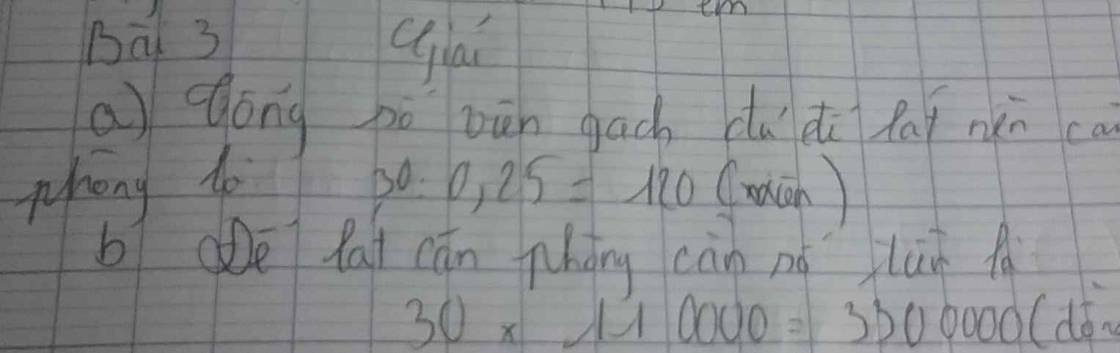 em
Bài 3 Giải
a) Tổng số viên gạch đủ để lát nền că
phòng là 30 : 0,25 = 120 (viên)
b Để lát căn phòng cần số tiền là
30 x 110000 = 3300000 (đồn